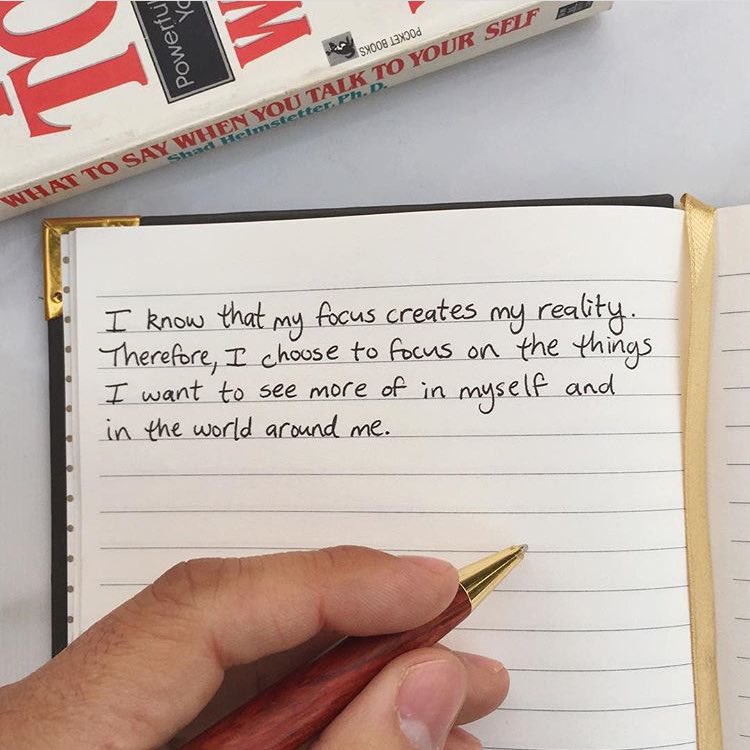 Powerful
POCKET BOOKS
WHAT TO SAY WHEN YOU TALK TO YOUR SELF
Shad Helmstetter, Ph.D.
I know that my focus creates my reality.
Therefore, I choose to focus on the things
I want to see more of in myself and
in the world around me.